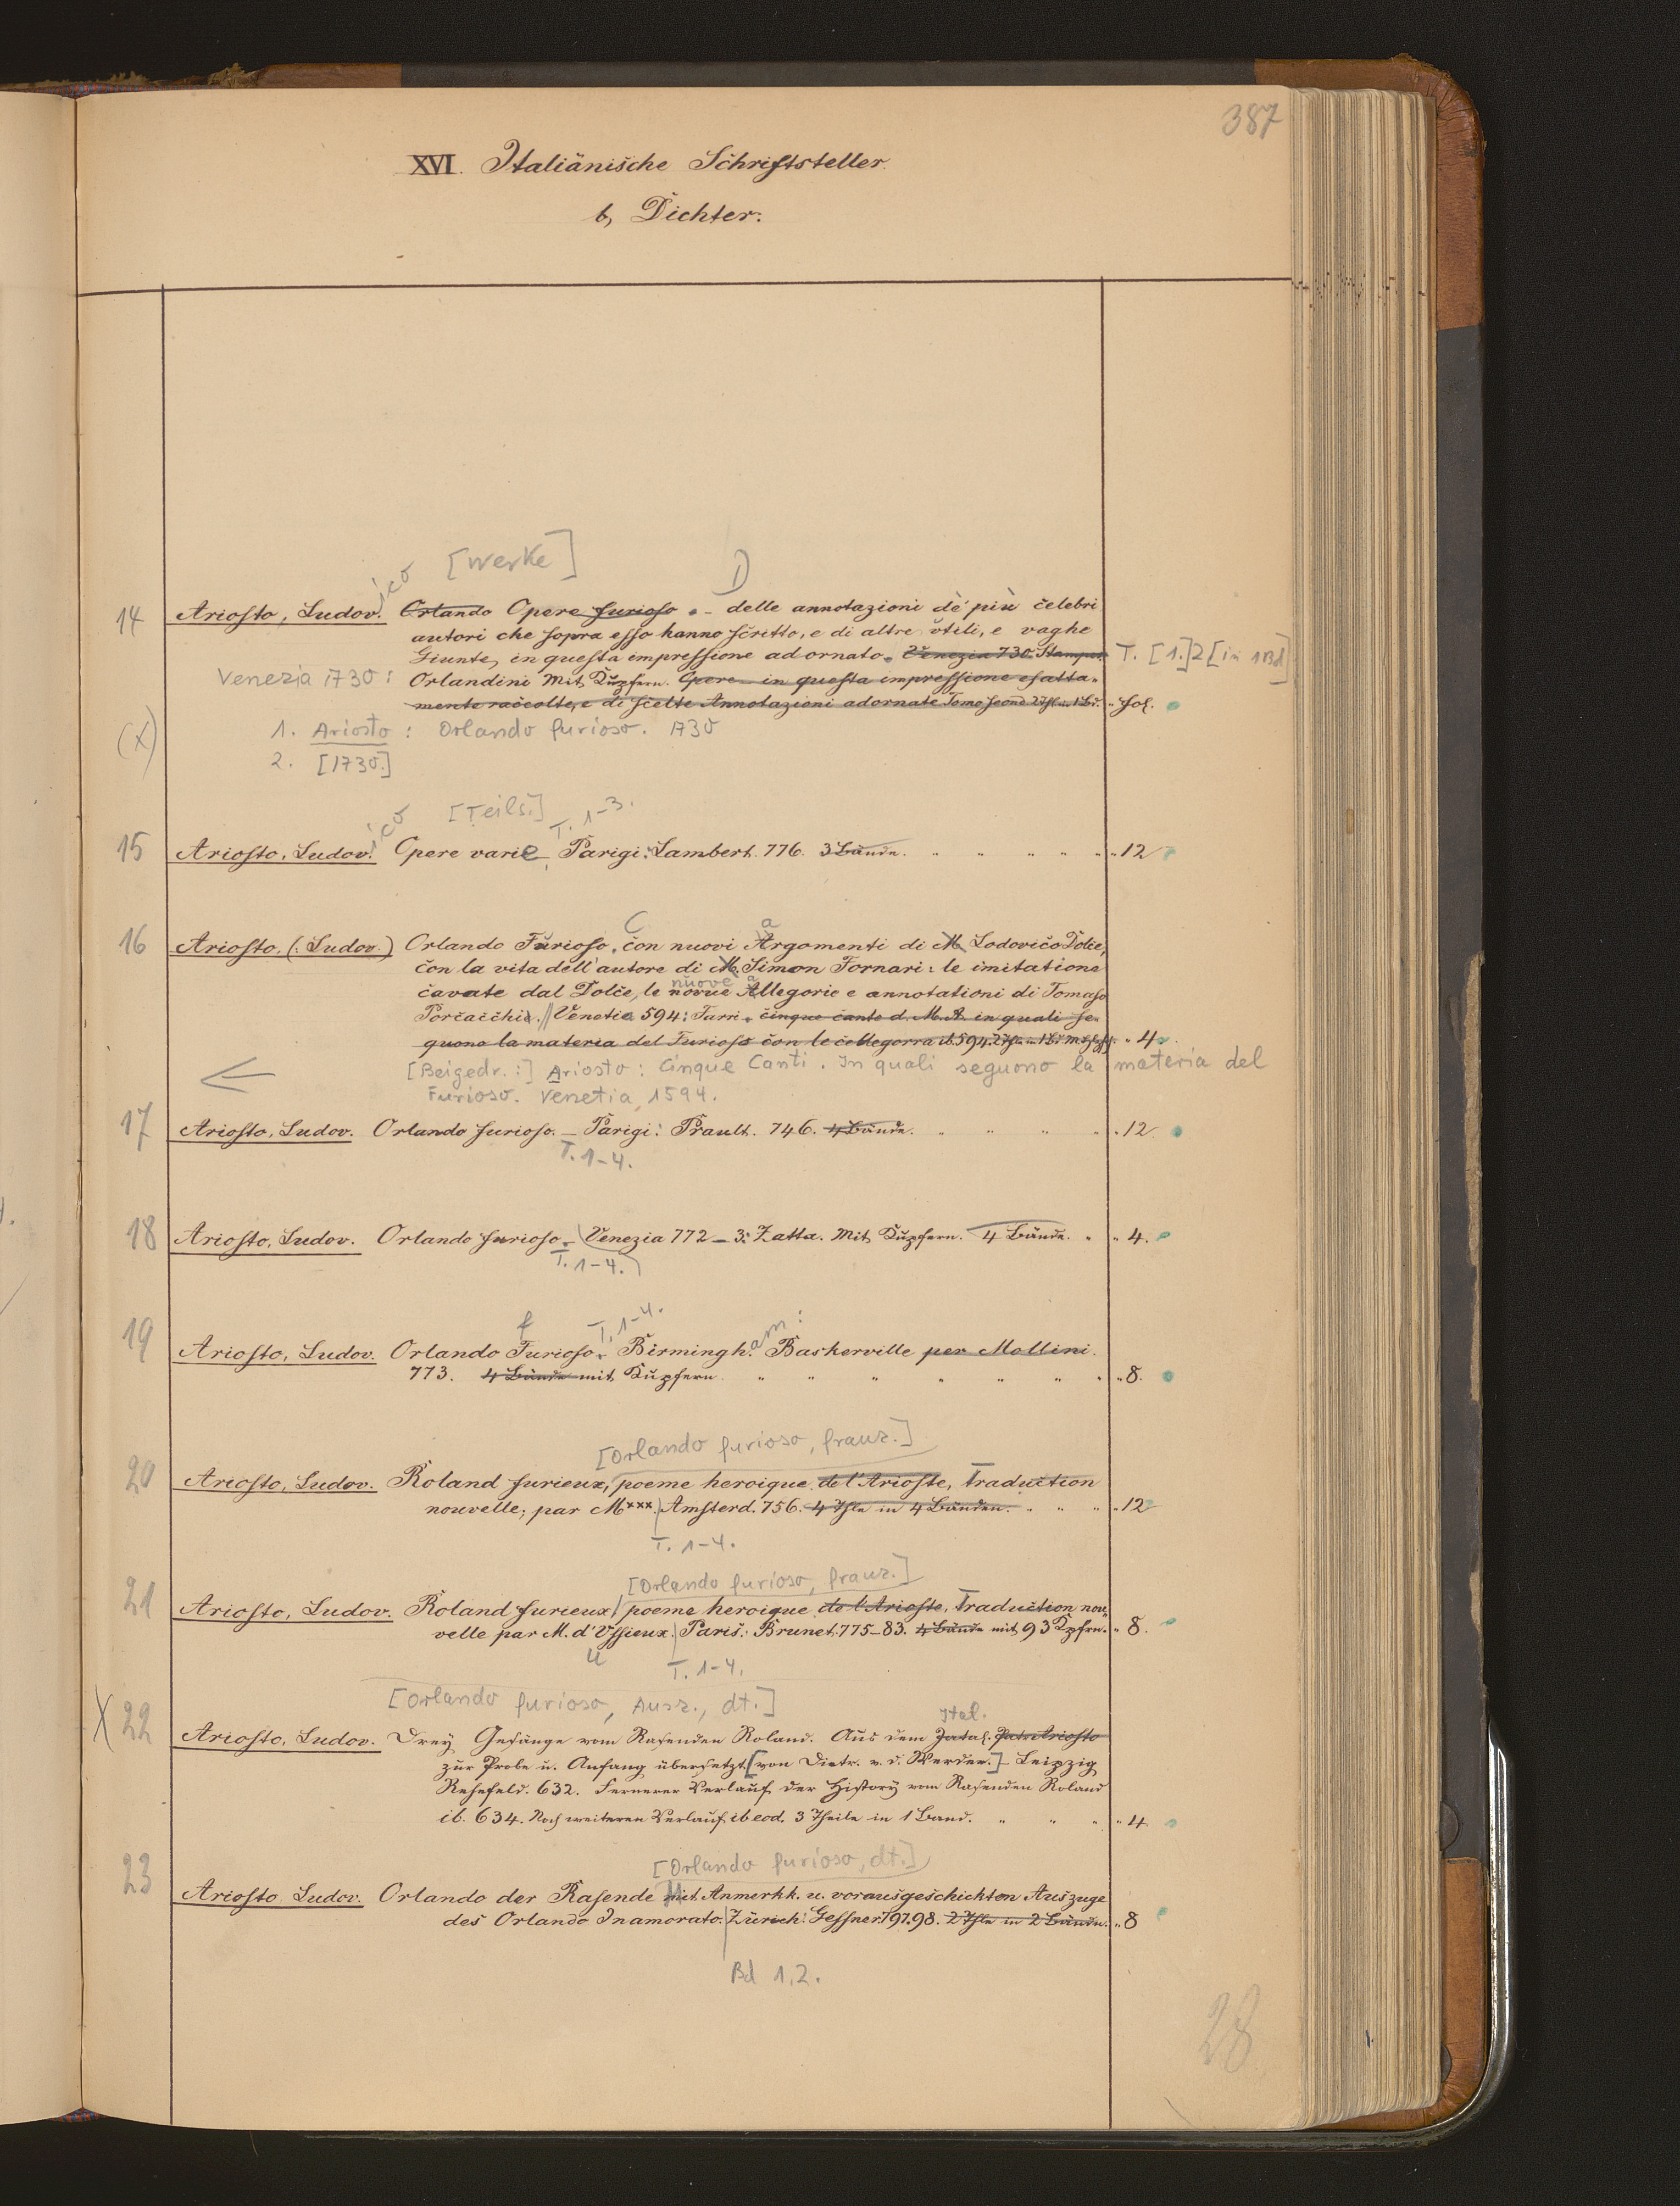 387
XVI. Italiänische Schriftsteller.
b, Dichter.
[Werke] D
14 Ariosto, Ludov.ico Orlando Opere furioso. - delle annotazioni de' più celebri
autori che sopra esso hanno scritto, e di altre utili, e vaghe
Giunte, in questa impressione adornato. Venezia 730. Stampat. T. [1.]2[in 1 Bd]
Venezia 1730: Orlandini Mit Kupfern. Opere in questa impressione esatta-
mente raccolte, e di scelte Annotazioni adornate Tomo second 2 Thle in 1 Bd. " fol.
(X) 1. Ariosto: Orlando furioso. 1730
2. [1730.]
[Teils.] T. 1-3.
15 Ariosto, Ludov.ico Opere varie Parigi: Lambert. 776. 3 Bände. " 12
C a
16 Ariosto, (: Ludov.) Orlando Furioso, con nuovi Argomenti di M. Lodovico Dolce,
con la vita dell' autore di M. Simon Fornari: le imitatione
nuove a
cavate dal Dolce, le novue Allegorie e annotationi di Tomaso
Porcacchi. Venetia 594: Turri. cinque cante d. M. A. in quali se-
quono la materia del Furioso con le collegorra ib. 594. " 4
[Beigedr.:] Ariosto: Cinque Canti. In quali seguono la materia del
Furioso. Venetia, 1594.
17 Ariosto, Ludov. Orlando furioso. - Parigi: Prault. 746. 4 Bände. " 12
T. 1-4.
18 Ariosto, Ludov. Orlando furioso. Venezia 772-3: Zatta. Mit Kupfern. 4 Bände. " 4.
T. 1-4.
f T. 1-4. am:
19 Ariosto, Ludov. Orlando Furioso. Birmingh. Baskerville per Mollini.
773. 4 Bände mit Kupfern " 8.
[Orlando furioso, franz.]
20 Ariosto, Ludov. Roland furieux, poeme heroique de l'Arioste, Traduction
nouvelle; par M*** Amsterd. 756. 4 Thle in 4 Bänden. " 12
T. 1-4.
[Orlando furioso, franz.]
21 Ariosto, Ludov. Roland furieux, poeme heroique de l'Arioste, Traduction nou-
velle par M. d'Ussieux. Paris: Brunet. 775-83. 4 Bände mit 93 Kpfrn. " 8.
U T. 1-4.
[Orlando furioso, Ausz., dt.]
Ital.
X 22 Ariosto, Ludov. Drey Gesänge vom Rasenden Roland. Aus dem Ital. Ariosto
zur Probe u. Anfang übersetzt [von Dietr. v. d. Werder.] - Leipzig
Rehefeld. 632. Fernerer Verlauf der History vom Rasenden Roland
ib. 634. Noch weiteren Verlauf ib eod. 3 Theile in 1 Band. " 4
[Orlando furioso, dt.]
23 Ariosto Ludov. Orlando der Rasende mit Anmerkk. u. vorausgeschickten Auszuge
des Orlando Inamorato. Zürich: Gessner. 797.98. 2 Thle in 2 Bänden. " 8
Bd 1.2.
28